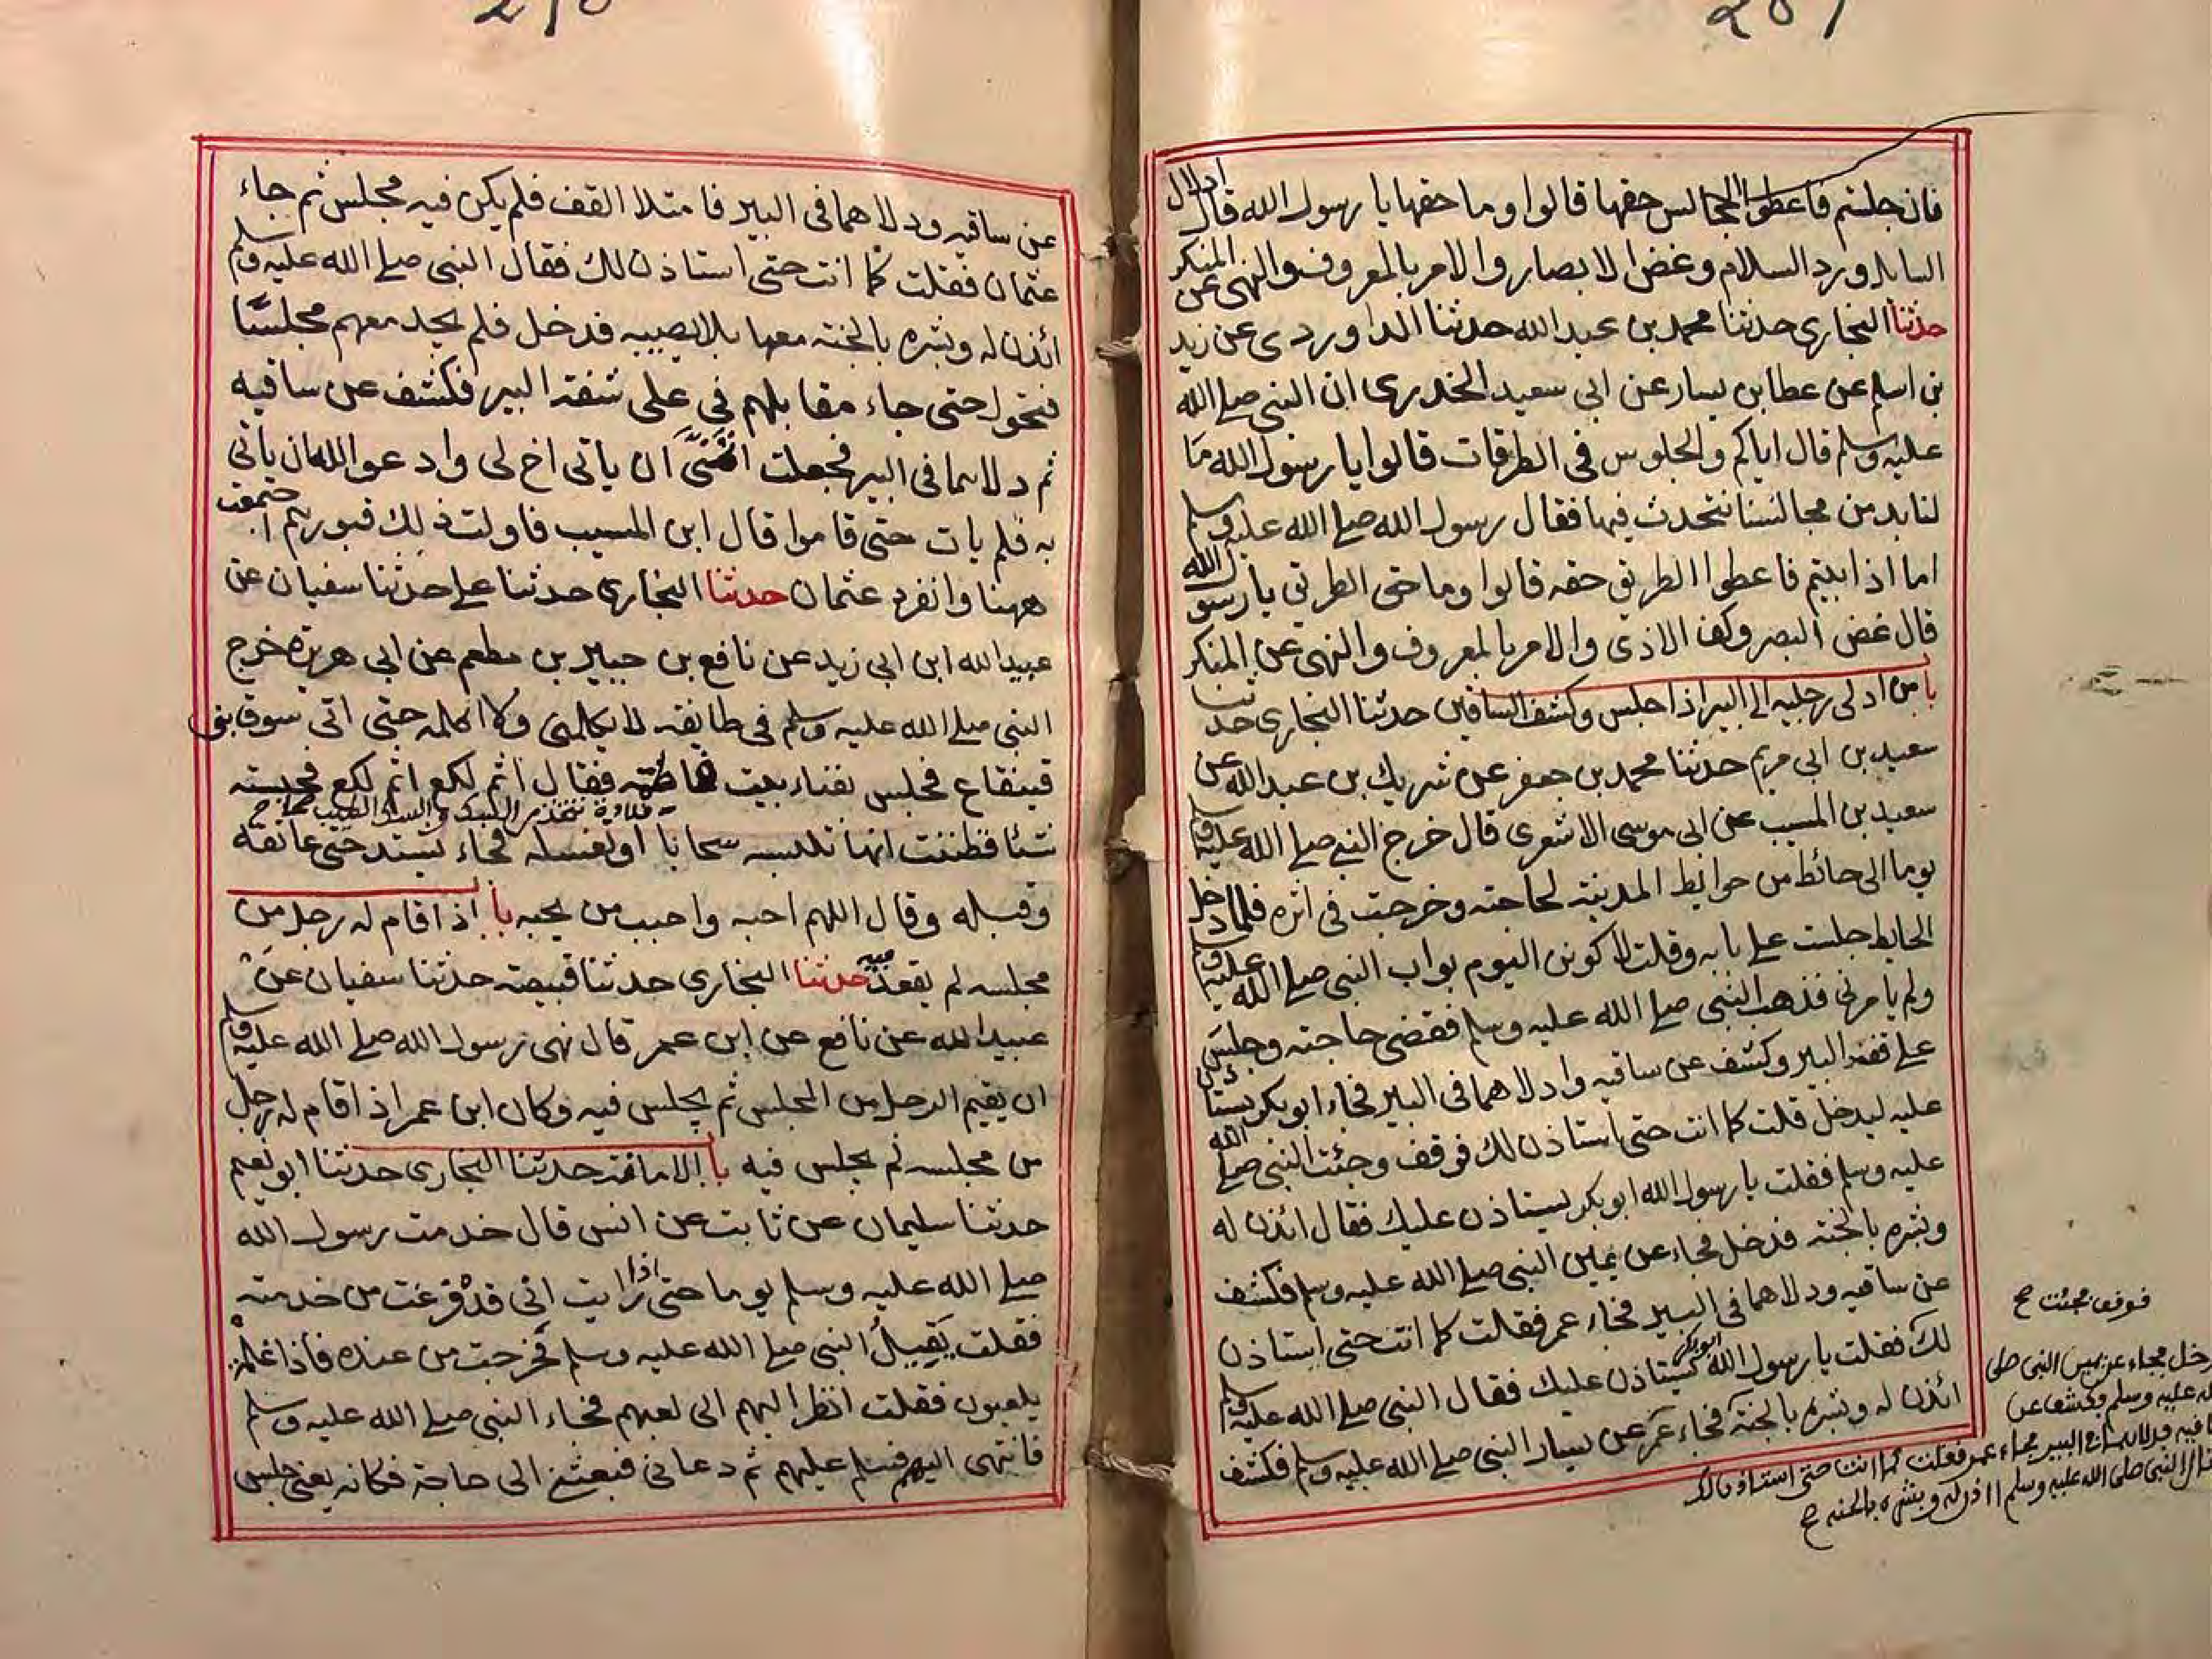 فان جلستم فاعطوا المجالس حقها قالوا وما حقها يا رسول الله قال ادلال
السايل ورد السلام وغض الابصار والامر بالمعروف والنهى عن المنكر
حدثنا البخارى حدثنا محمد بن عبيد الله حدثنا الداوردى عن زيد
بن اسلم عن عطا بن يسار عن ابي سعيد الخدرى ان النبى صلى الله
عليه وسلم قال اياكم والجلوس في الطرقات قالوا يا رسول الله ما
لنا بد من مجالسنا نتحدث فيها فقال رسول الله صلى الله عليه وسلم
اما اذا ابيتم فاعطوا الطريق حقه قالوا وما حق الطريق يا رسول الله
قال غض البصر وكف الاذى والامر بالمعروف والنهى عن المنكر
با من ادلى رجليه الى البير اذا جلس وكشف الساقين حدثنا البخارى حدثنا
سعيد بن ابي مريم حدثنا محمد بن جعفر عن شريك بن عبد الله عن
سعيد بن المسيب عن ابي موسى الاشعرى قال خرج النبي صلى الله عليه وسلم
يوما الى حائط من حوايط المدينة لحاجته وخرجت في اثره فلما دخل
الحايط جلست على بابه وقلت لاكونن اليوم بواب النبى صلى الله عليه وسلم
ولم يامرنى فذهب النبى صلى الله عليه وسلم فقضى حاجته وجلس
على قفة البير وكشف عن ساقيه وادلاهما فى البير فجاء ابو بكر يستاذن
عليه ليدخل قلت كما انت حتى استاذن لك فوقف وجئت النبى صلى الله
عليه وسلم فقلت يا رسول الله ابو بكر يستاذن عليك فقال ائذن له
وبشره بالجنة فدخل فجاء عن يمين النبى صلى الله عليه وسلم فكشف
عن ساقيه ودلاهما فى البير فجاء عمر فقلت كما انت حتى استاذن
لك فقلت يا رسول الله ابو بكر يستاذن عليك فقال النبى صلى الله عليه وسلم
ائذن له وبشره بالجنة فجاء عمر عن يسار النبى صلى الله عليه وسلم فكشف
فوقف فجئت ح
دخل فجاء عن يمين النبى صلى
الله عليه وسلم وكشف عن
ساقيه ودلاهما فى البير فجاء عمر فقلت كما انت حتى استاذن لك
فقال النبى صلى الله عليه وسلم ائذن له وبشره بالجنة ح
عن ساقيه ودلاهما فى البير فامتلا القف فلم يكن فيه مجلس ثم جاء
عثمان فقلت كما انت حتى استاذن لك فقال النبى صلى الله عليه وسلم
ائذن له وبشره بالجنة معها بلا يصيبه فدخل فلم يجد معهم مجلسا
فتحول حتى جاء مقابلهم في على شفة البير فكشف عن ساقيه
ثم دلاهما فى البير فجعلت اتمنى ان ياتى اخ لى وادعو الله ان ياتى
به فلم يات حتى قاموا قال ابن المسيب فاولت ذلك قبورهم اجتمعت
ههنا وانفرد عثمان حدثنا البخارى حدثنا على حدثنا سفيان عن
عبيد الله ابن ابي زيد عن نافع بن جبير بن مطعم عن ابي هريرة خرج
النبى صلى الله عليه وسلم فى طايفة لا يكلمنى ولا اكلمه حتى اتى سوق بنى
قينقاع فجلس بفناء بيت فاطمة فقال اثم لكع اثم لكع فحبسته
شئا فظننت انها تلبسه سخابا او تغسله فجاء يشتد حتى عانقه
وقبله وقال اللهم احبه واحبب من يحبه با اذا قام له رجل من
مجلسه لم يقعد فيه حدثنا البخارى حدثنا قبيصة حدثنا سفيان عن
عبيد الله عن نافع عن ابن عمر قال نهى رسول الله صلى الله عليه وسلم
ان يقيم الرجل من المجلس ثم يجلس فيه وكان ابن عمر اذا قام له رجل
من مجلسه لم يجلس فيه با الامانة حدثنا البخارى حدثنا ابو نعيم
حدثنا سليمان عن ثابت عن انس قال خدمت رسول الله
صلى الله عليه وسلم يوما حتى اذا رايت انى قد فرغت من خدمته
فقلت يقيل النبى صلى الله عليه وسلم فخرجت من عنده فاذا غلمة
يلعبون فقلت انظر اليهم الى لعبهم فجاء النبى صلى الله عليه وسلم
فانتهى اليهم فسلم عليهم ثم دعانى فبعثنى الى حاجة فكانه يعنى جلس